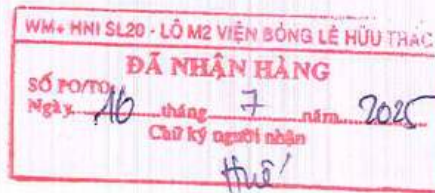 WM+ HNI SL20 - LÔ M2 VIỆN BỎNG LÊ HỮU THÁC
ĐÃ NHẬN HÀNG
SỐ PO/TO
Ngày 16 tháng 7 năm 2025
Chữ ký người nhận
Huế